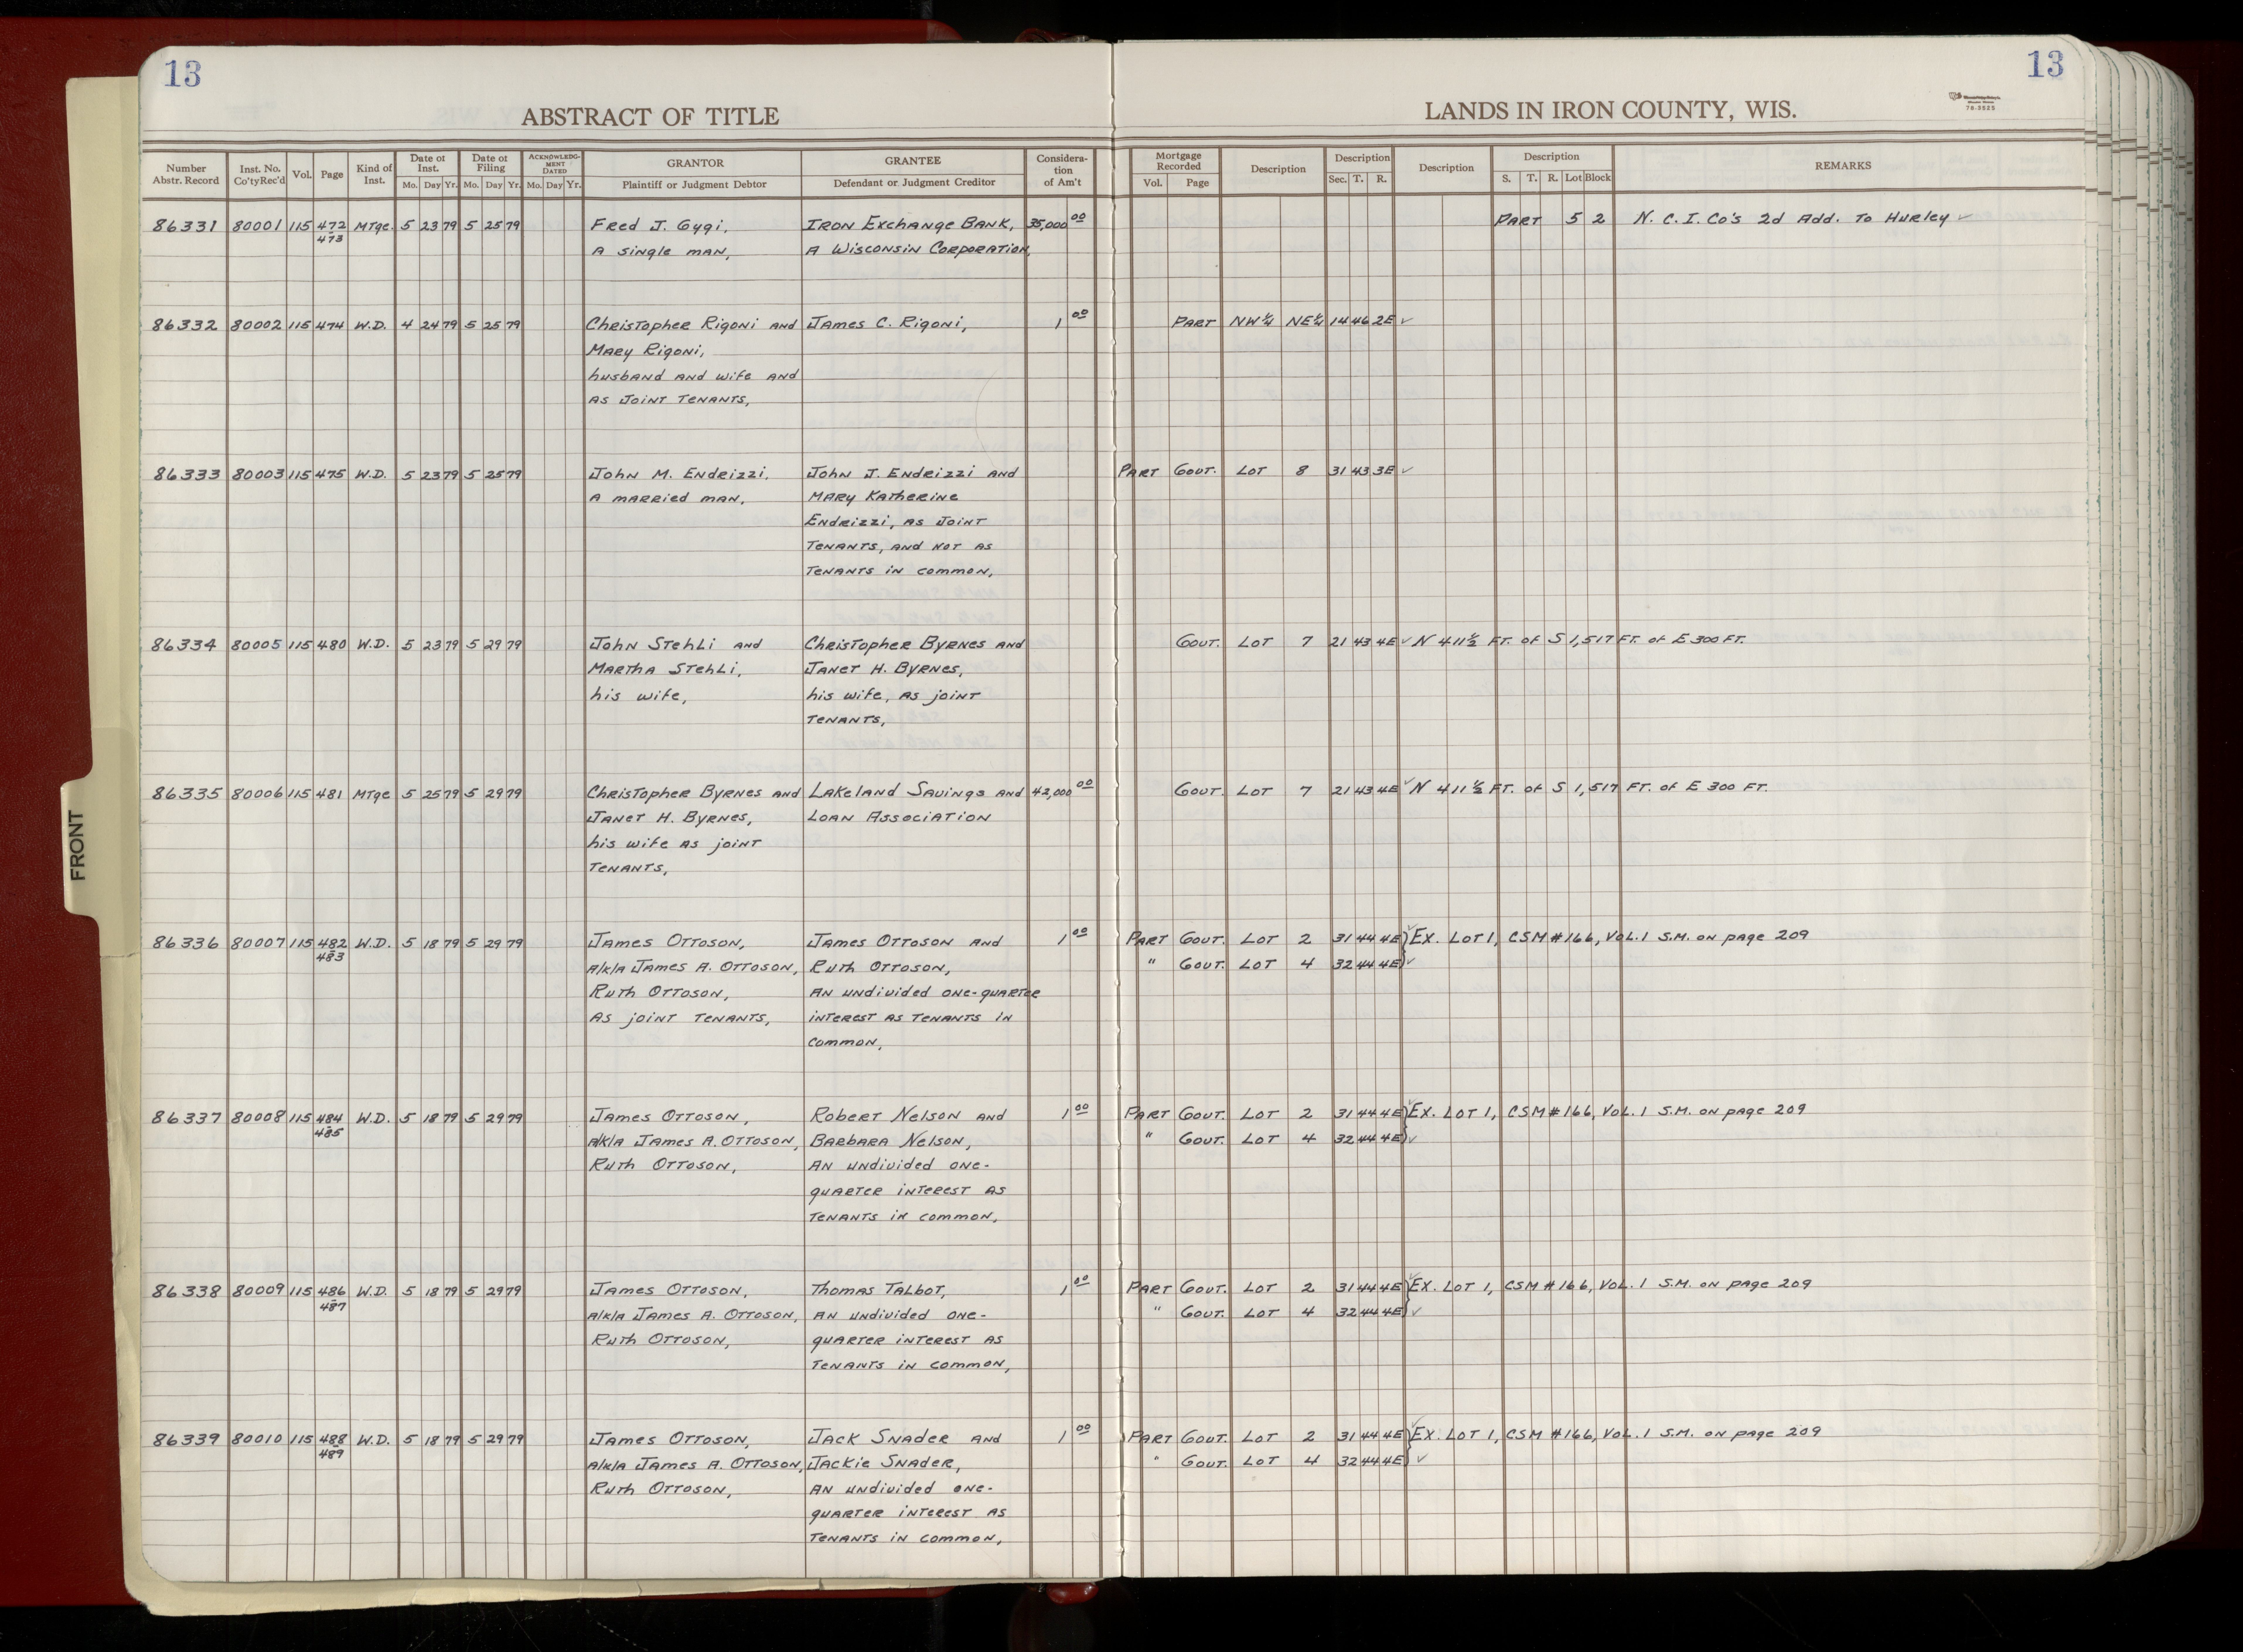 13
13
ABSTRACT OF TITLE
LANDS IN IRON COUNTY, WIS.
78-3525
Number Abstr. Record
Inst. No. Co'ty Rec'd
Vol.
Page
Kind of Inst.
Date of Inst.
Mo. Day Yr.
Date of Filing
Mo. Day Yr.
ACKNOWLEDG-MENT DATED
Mo. Day Yr.
GRANTOR
Plaintiff or Judgment Debtor
GRANTEE
Defendant or Judgment Creditor
Considera-tion of Am't
Mortgage Recorded
Vol. Page
Description
Description
Sec. T. R.
Description
Description
S. T. R. Lot Block
REMARKS
86331 80001 115 472 Mtge. 5 23 79 5 25 79 Fred J. Gygi, Iron Exchange Bank, 35,000 00 Part 5 2 N. C. I. Co's 2d Add. To Hurley ✓
473
a single man, a Wisconsin Corporation,
86332 80002 115 474 W.D. 4 24 79 5 25 79 Christopher Rigoni and James C. Rigoni, 1 00 Part NW¼ NE¼ 14 46 2E ✓
Mary Rigoni,
husband and wife and
as Joint Tenants,
86333 80003 115 475 W.D. 5 23 79 5 25 79 John M. Endrizzi, John J. Endrizzi and Part Gout. Lot 8 31 43 3E ✓
a married man, Mary Katherine
Endrizzi, as Joint
Tenants, and not as
Tenants in common,
86334 80005 115 480 W.D. 5 23 79 5 29 79 John Stehli and Christopher Byrnes and Gout. Lot 7 21 43 4E ✓ N 411½ Ft. of S 1,517 Ft. of E 300 Ft.
Martha Stehli, Janet H. Byrnes,
his wife, his wife, as joint
Tenants,
86335 80006 115 481 Mtge 5 25 79 5 29 79 Christopher Byrnes and Lakeland Savings and 42,000 00 Gout. Lot 7 21 43 4E ✓ N 411½ Ft. of S 1,517 Ft. of E 300 Ft.
Janet H. Byrnes, Loan Association
his wife as joint
Tenants,
86336 80007 115 482 W.D. 5 18 79 5 29 79 James Ottoson, James Ottoson and 1 00 Part Gout. Lot 2 31 44 4E ✓ Ex. Lot 1, CSM #166, Vol. 1 S.M. on page 209
483
a/k/a James A. Ottoson, Ruth Ottoson, " Gout. Lot 4 32 44 4E ✓
Ruth Ottoson, an undivided one-quarter
as joint Tenants, interest as Tenants in
common,
86337 80008 115 484 W.D. 5 18 79 5 29 79 James Ottoson, Robert Nelson and 1 00 Part Gout. Lot 2 31 44 4E ✓ Ex. Lot 1, CSM #166, Vol. 1 S.M. on page 209
485
a/k/a James A. Ottoson, Barbara Nelson, " Gout. Lot 4 32 44 4E ✓
Ruth Ottoson, an undivided one-
quarter interest as
Tenants in common,
86338 80009 115 486 W.D. 5 18 79 5 29 79 James Ottoson, Thomas Talbot, 1 00 Part Gout. Lot 2 31 44 4E ✓ Ex. Lot 1, CSM #166, Vol. 1 S.M. on page 209
487
a/k/a James A. Ottoson, an undivided one- " Gout. Lot 4 32 44 4E ✓
Ruth Ottoson, quarter interest as
Tenants in common,
86339 80010 115 488 W.D. 5 18 79 5 29 79 James Ottoson, Jack Snader and 1 00 Part Gout. Lot 2 31 44 4E ✓ Ex. Lot 1, CSM #166, Vol. 1 S.M. on page 209
489
a/k/a James A. Ottoson, Jackie Snader, " Gout. Lot 4 32 44 4E ✓
Ruth Ottoson, an undivided one-
quarter interest as
Tenants in common,
FRONT